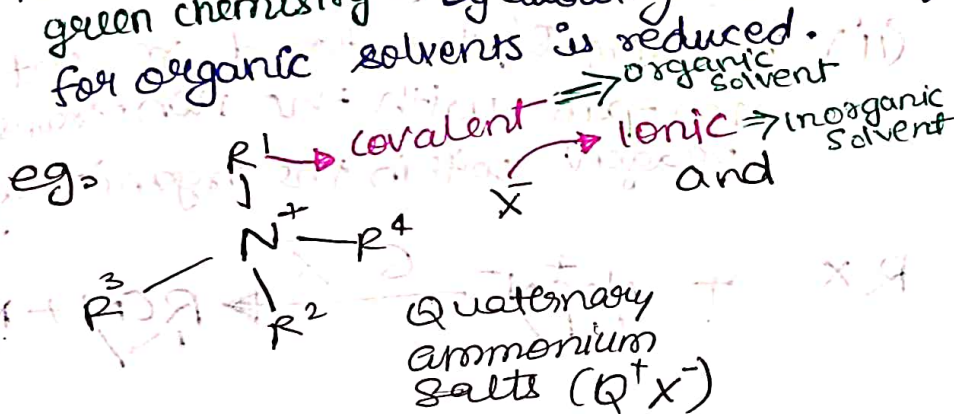 green chemistry
for organic solvents is reduced.
eg, R¹ covalent ⇒ organic solvent
X⁻ Ionic ⇒ inorganic solvent
and
N⁺ — R⁴
R³
R²
Quaternary
ammonium
salts (Q⁺X⁻)